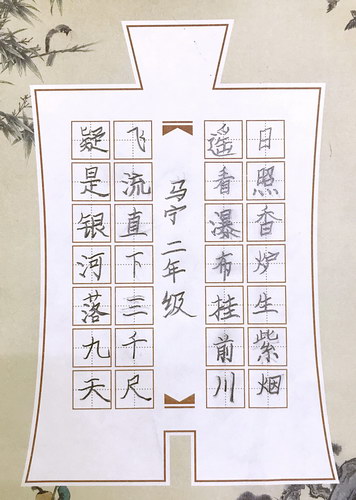 日照香炉生紫烟
遥看瀑布挂前川
马宁 二年级
飞流直下三千尺
疑是银河落九天